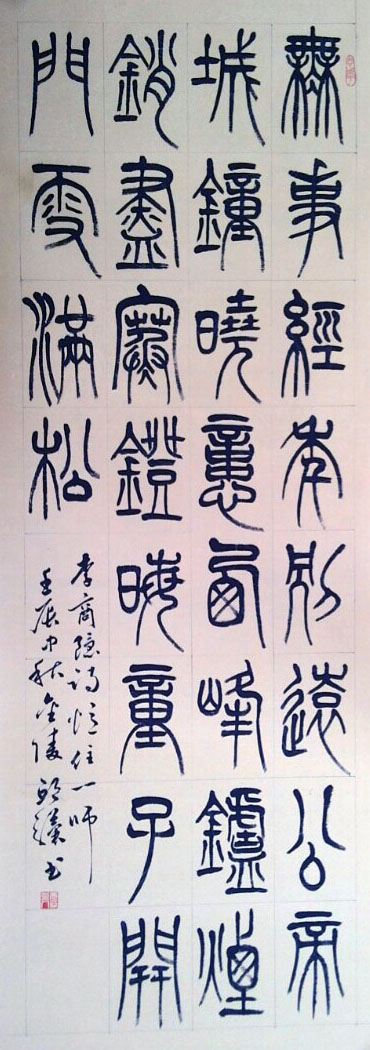 無事經年別遠公帝
城鐘曉憶西峰鑪煙
銷盡寒鐙晦童子開
門雪滿松
李商隱詩憶住一師
壬辰中秋金陵